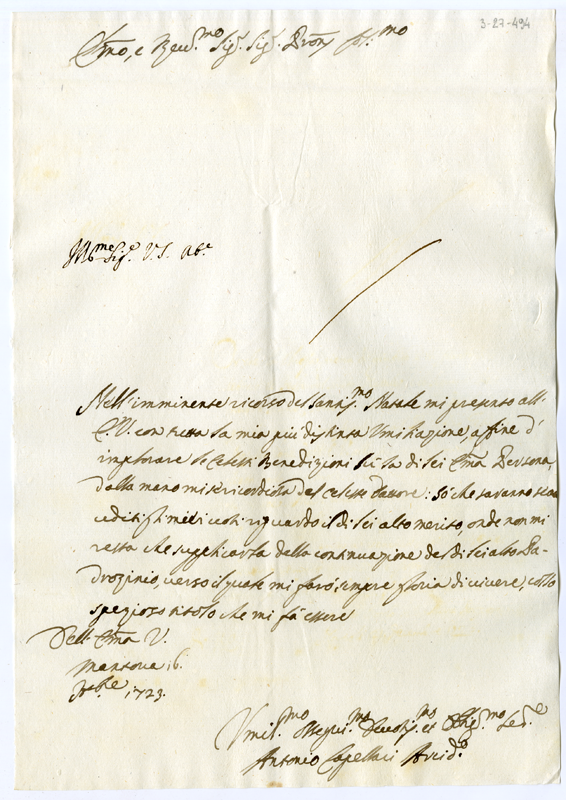 3-27-494
Emo, e Reud.mo Sig.r Sig.r Pron
V.S. Ab.e
Nell'imminente ricorso del Santis.mo Natale mi presento all'
E.V. con tutta la mia più distinta Umiliazione, affine d'
implorare le Celesti Benedizioni la di lei Ema Persona,
dalla mano misericordiosa del Celeste Pastore: Sò che saranno
i di lei alto merito, onde non mi
resta che supplicarla della continuazione del di lei alto Pa-
drozinio, verso il quale mi farò sempre gloria di vivere, collo
spezioso titolo che mi fà essere
Dell'Ema V.
Mantova 16.
1723.
Umil.mo Ossequi.mo Deuotis.mo et Oblig.mo Se.e
Antonio Capellari Arcid.o